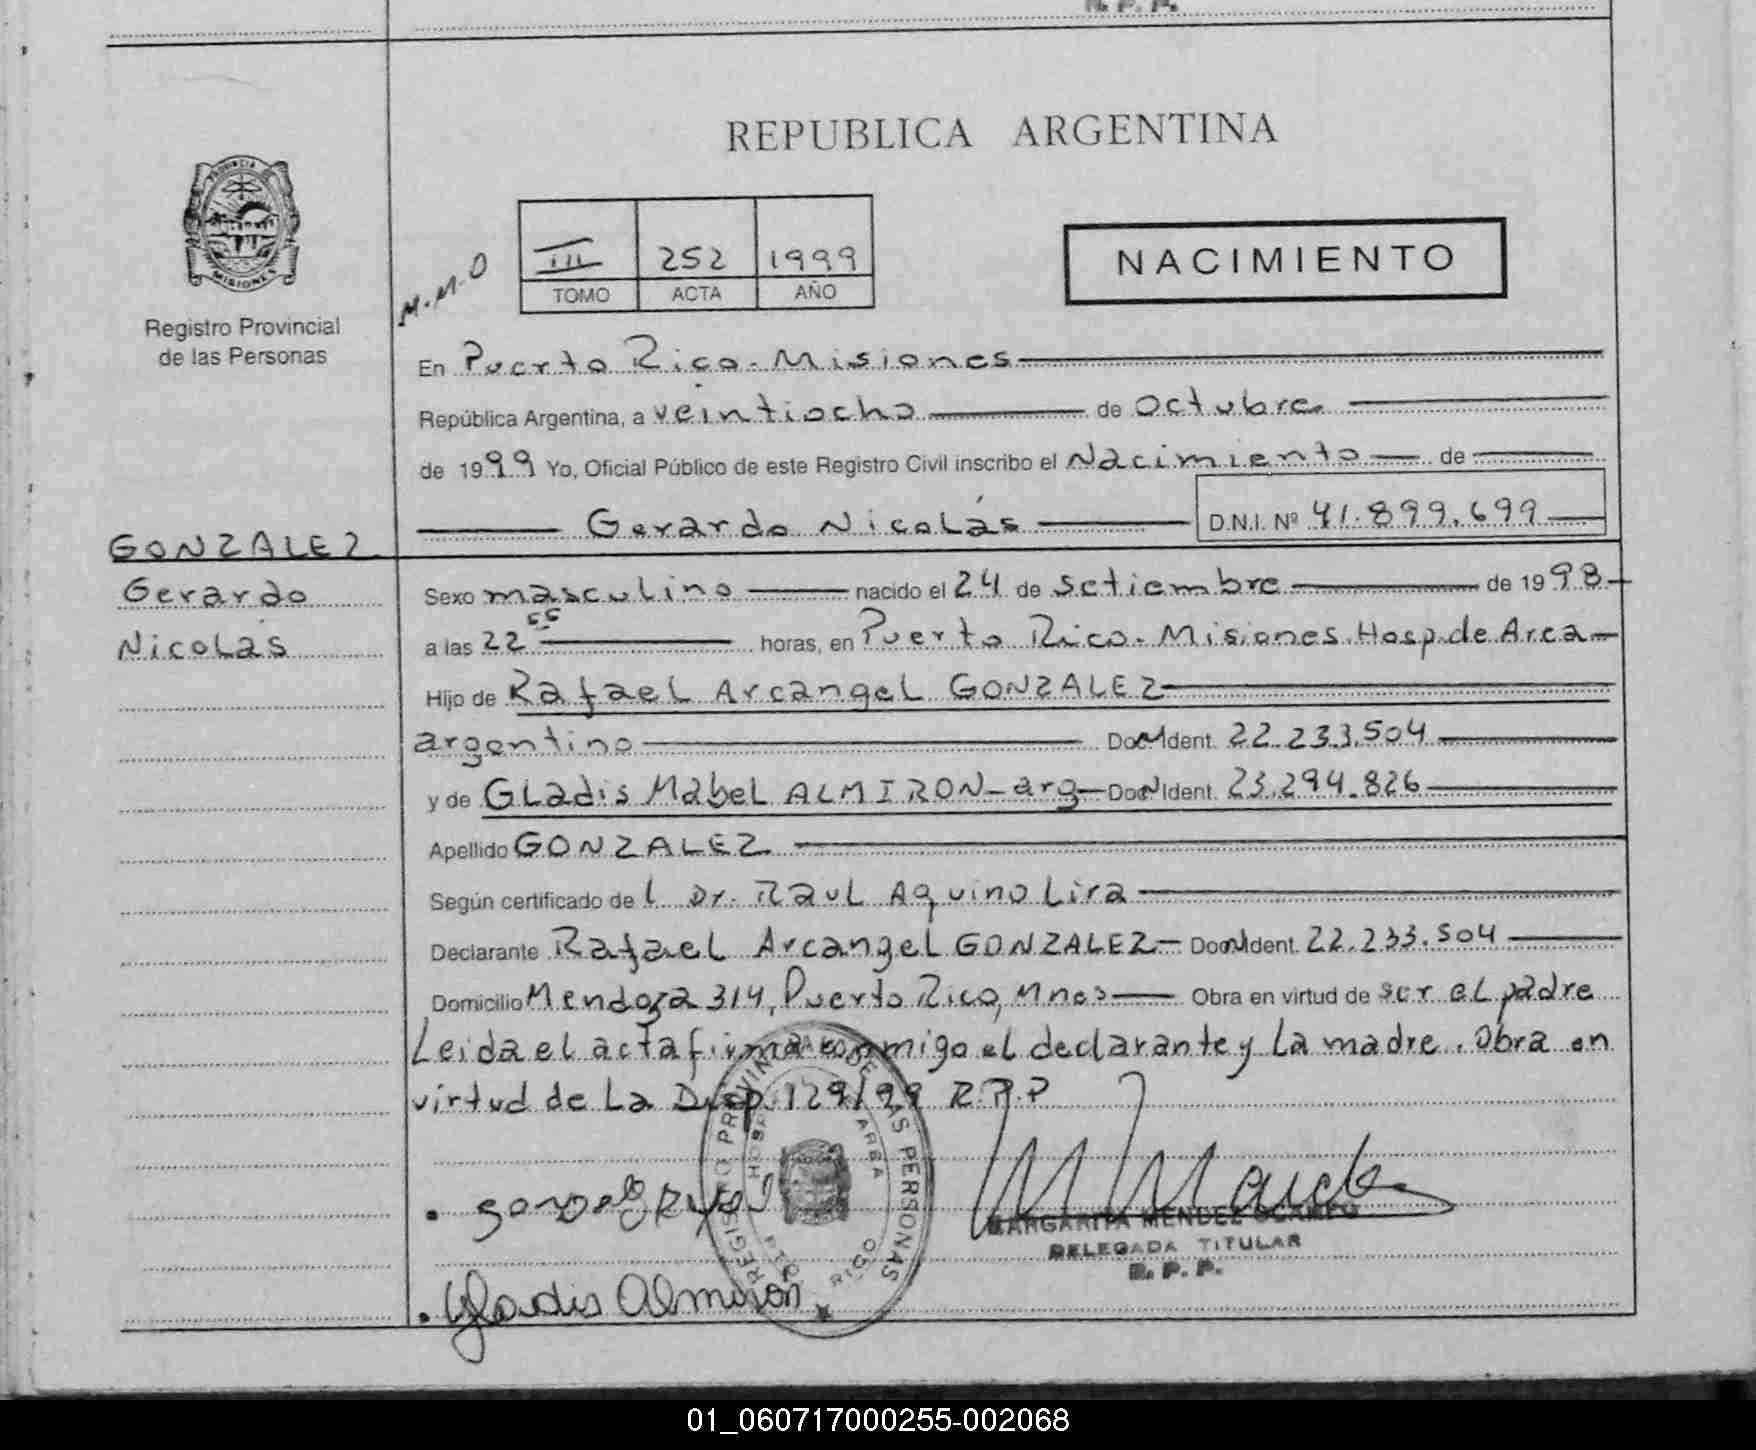 R. P. P.
REPUBLICA ARGENTINA
PROVINCIA DE
MISIONES
Registro Provincial
de las Personas
M.M.O
III 252 1999
TOMO ACTA AÑO
NACIMIENTO
En Puerto Rico - Misiones
República Argentina, a veintiocho de Octubre
de 1999 Yo, Oficial Público de este Registro Civil inscribo el Nacimiento de
Gerardo Nicolás D.N.I. Nº 41.899.699
GONZALEZ
Gerardo
Nicolás
Sexo masculino nacido el 24 de setiembre de 1998
a las 22 55 horas, en Puerto Rico - Misiones Hosp. de Area
Hijo de Rafael Arcangel GONZALEZ
argentino Doc. Ident. 22.233.504
y de Gladis Mabel ALMIRON - arg Doc. Ident. 23.294.826
Apellido GONZALEZ
Según certificado del Dr. Raul Aquino Lira
Declarante Rafael Arcangel GONZALEZ Doc. Ident. 22.233.504
Domicilio Mendoza 314, Puerto Rico, Mnes Obra en virtud de ser el padre
Leida el acta firma conmigo el declarante y la madre. Obra en
virtud de la Disp. 129/99 R.P.P
REGISTRO PROVINCIAL DE LAS PERSONAS
MARGARITA MENDEZ OCAMPO
DELEGADA TITULAR
R. P. P.
Gladis Almiron
01_060717000255-002068